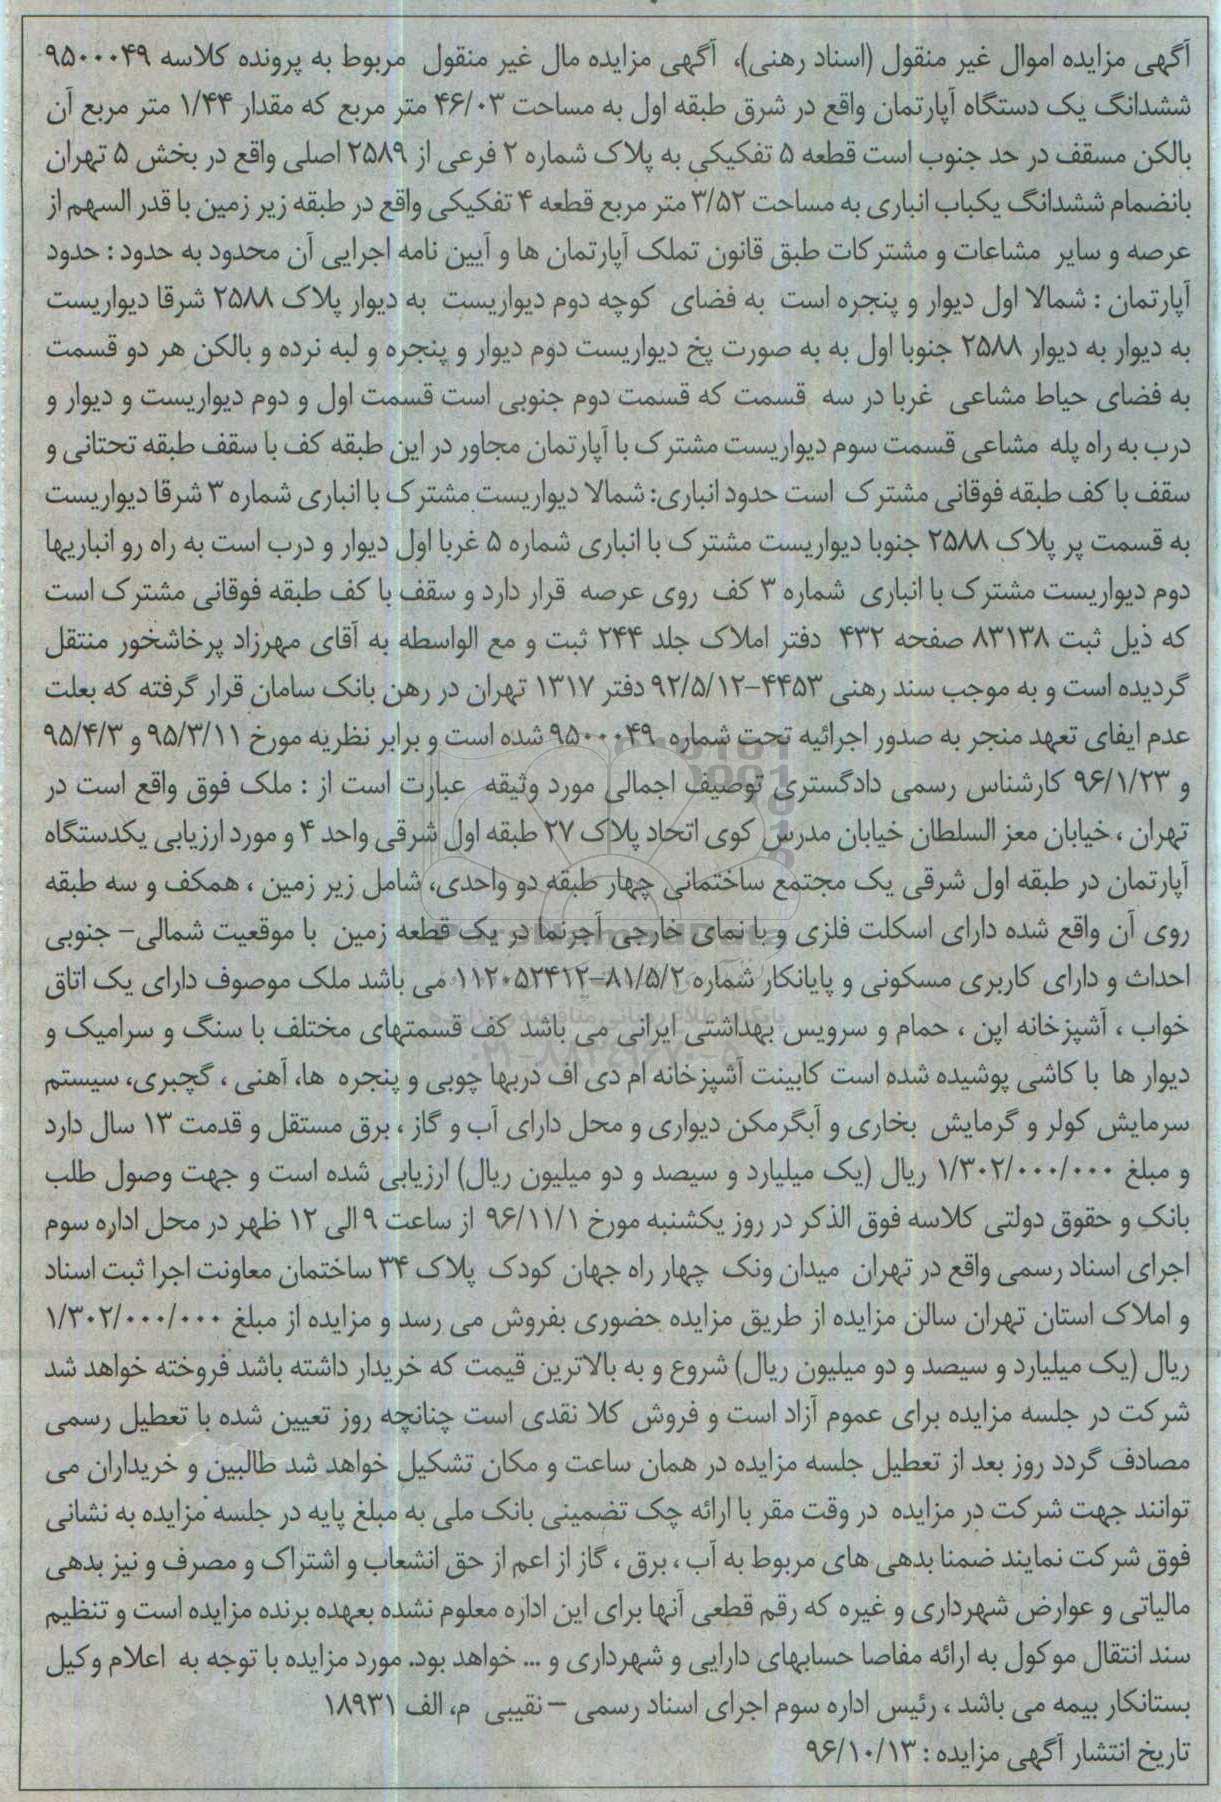 آگهی مزایده اموال غیر منقول (اسناد رهنی)، آگهی مزایده مال غیر منقول مربوط به پرونده کلاسه ۹۵۰۰۰۴۹
ششدانگ یک دستگاه آپارتمان واقع در شرق طبقه اول به مساحت ۴۶/۰۳ متر مربع که مقدار ۱/۴۴ متر مربع آن
بالکن مسقف در حد جنوب است قطعه ۵ تفکیکی به پلاک شماره ۲ فرعی از ۲۵۸۹ اصلی واقع در بخش ۵ تهران
بانضمام ششدانگ یکباب انباری به مساحت ۳/۵۲ متر مربع قطعه ۴ تفکیکی واقع در طبقه زیر زمین با قدر السهم از
عرصه و سایر مشاعات و مشترکات طبق قانون تملک آپارتمان ها و آیین نامه اجرایی آن محدود به حدود : حدود
آپارتمان : شمالا اول دیوار و پنجره است به فضای کوچه دوم دیواریست به دیوار پلاک ۲۵۸۸ شرقا دیواریست
به دیوار به دیوار ۲۵۸۸ جنوبا اول به به صورت پخ دیواریست دوم دیوار و پنجره و لبه نرده و بالکن هر دو قسمت
به فضای حیاط مشاعی غربا در سه قسمت که قسمت دوم جنوبی است قسمت اول و دوم دیواریست و دیوار و
درب به راه پله مشاعی قسمت سوم دیواریست مشترک با آپارتمان مجاور در این طبقه کف با سقف طبقه تحتانی و
سقف با کف طبقه فوقانی مشترک است حدود انباری: شمالا دیواریست مشترک با انباری شماره ۳ شرقا دیواریست
به قسمت پر پلاک ۲۵۸۸ جنوبا دیواریست مشترک با انباری شماره ۵ غربا اول دیوار و درب است به راه رو انباریها
دوم دیواریست مشترک با انباری شماره ۳ کف روی عرصه قرار دارد و سقف با کف طبقه فوقانی مشترک است
که ذیل ثبت ۸۳۱۳۸ صفحه ۴۳۲ دفتر املاک جلد ۲۴۴ ثبت و مع الواسطه به آقای مهرزاد پرخاشخور منتقل
گردیده است و به موجب سند رهنی ۴۴۵۳-۹۲/۵/۱۲ دفتر ۱۳۱۷ تهران در رهن بانک سامان قرار گرفته که بعلت
عدم ایفای تعهد منجر به صدور اجرائیه تحت شماره ۹۵۰۰۰۴۹ شده است و برابر نظریه مورخ ۹۵/۳/۱۱ و ۹۵/۴/۳
و ۹۶/۱/۲۳ کارشناس رسمی دادگستری توصیف اجمالی مورد وثیقه عبارت است از : ملک فوق واقع است در
تهران ، خیابان معز السلطان خیابان مدرس کوی اتحاد پلاک ۲۷ طبقه اول شرقی واحد ۴ و مورد ارزیابی یکدستگاه
آپارتمان در طبقه اول شرقی یک مجتمع ساختمانی چهار طبقه دو واحدی، شامل زیر زمین ، همکف و سه طبقه
روی آن واقع شده دارای اسکلت فلزی و با نمای خارجی آجرنما در یک قطعه زمین با موقعیت شمالی- جنوبی
احداث و دارای کاربری مسکونی و پایانکار شماره ۸۱/۵/۲-۱۱۲۰۵۲۴۱۲ می باشد ملک موصوف دارای یک اتاق
خواب ، آشپزخانه اپن ، حمام و سرویس بهداشتی ایرانی می باشد کف قسمتهای مختلف با سنگ و سرامیک و
دیوار ها با کاشی پوشیده شده است کابینت آشپزخانه ام دی اف دربها چوبی و پنجره ها، آهنی ، گچبری، سیستم
سرمایش کولر و گرمایش بخاری و آبگرمکن دیواری و محل دارای آب و گاز ، برق مستقل و قدمت ۱۳ سال دارد
و مبلغ ۱/۳۰۲/۰۰۰/۰۰۰ ریال (یک میلیارد و سیصد و دو میلیون ریال) ارزیابی شده است و جهت وصول طلب
بانک و حقوق دولتی کلاسه فوق الذکر در روز یکشنبه مورخ ۹۶/۱۱/۱ از ساعت ۹ الی ۱۲ ظهر در محل اداره سوم
اجرای اسناد رسمی واقع در تهران میدان ونک چهار راه جهان کودک پلاک ۳۴ ساختمان معاونت اجرا ثبت اسناد
و املاک استان تهران سالن مزایده از طریق مزایده حضوری بفروش می رسد و مزایده از مبلغ ۱/۳۰۲/۰۰۰/۰۰۰
ریال (یک میلیارد و سیصد و دو میلیون ریال) شروع و به بالاترین قیمت که خریدار داشته باشد فروخته خواهد شد
شرکت در جلسه مزایده برای عموم آزاد است و فروش کلا نقدی است چنانچه روز تعیین شده با تعطیل رسمی
مصادف گردد روز بعد از تعطیل جلسه مزایده در همان ساعت و مکان تشکیل خواهد شد طالبین و خریداران می
توانند جهت شرکت در مزایده در وقت مقر با ارائه چک تضمینی بانک ملی به مبلغ پایه در جلسه مزایده به نشانی
فوق شرکت نمایند ضمنا بدهی های مربوط به آب ، برق ، گاز از اعم از حق انشعاب و اشتراک و مصرف و نیز بدهی
مالیاتی و عوارض شهرداری و غیره که رقم قطعی آنها برای این اداره معلوم نشده بعهده برنده مزایده است و تنظیم
سند انتقال موکول به ارائه مفاصا حسابهای دارایی و شهرداری و ... خواهد بود. مورد مزایده با توجه به اعلام وکیل
بستانکار بیمه می باشد ، رئیس اداره سوم اجرای اسناد رسمی – نقیبی م، الف ۱۸۹۳۱
تاریخ انتشار آگهی مزایده : ۹۶/۱۰/۱۳